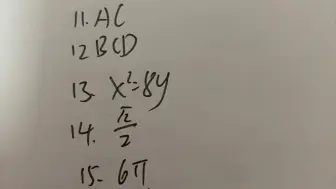 11. AC
12 BCD
13. x²=8y
14. π/2
15. 6π